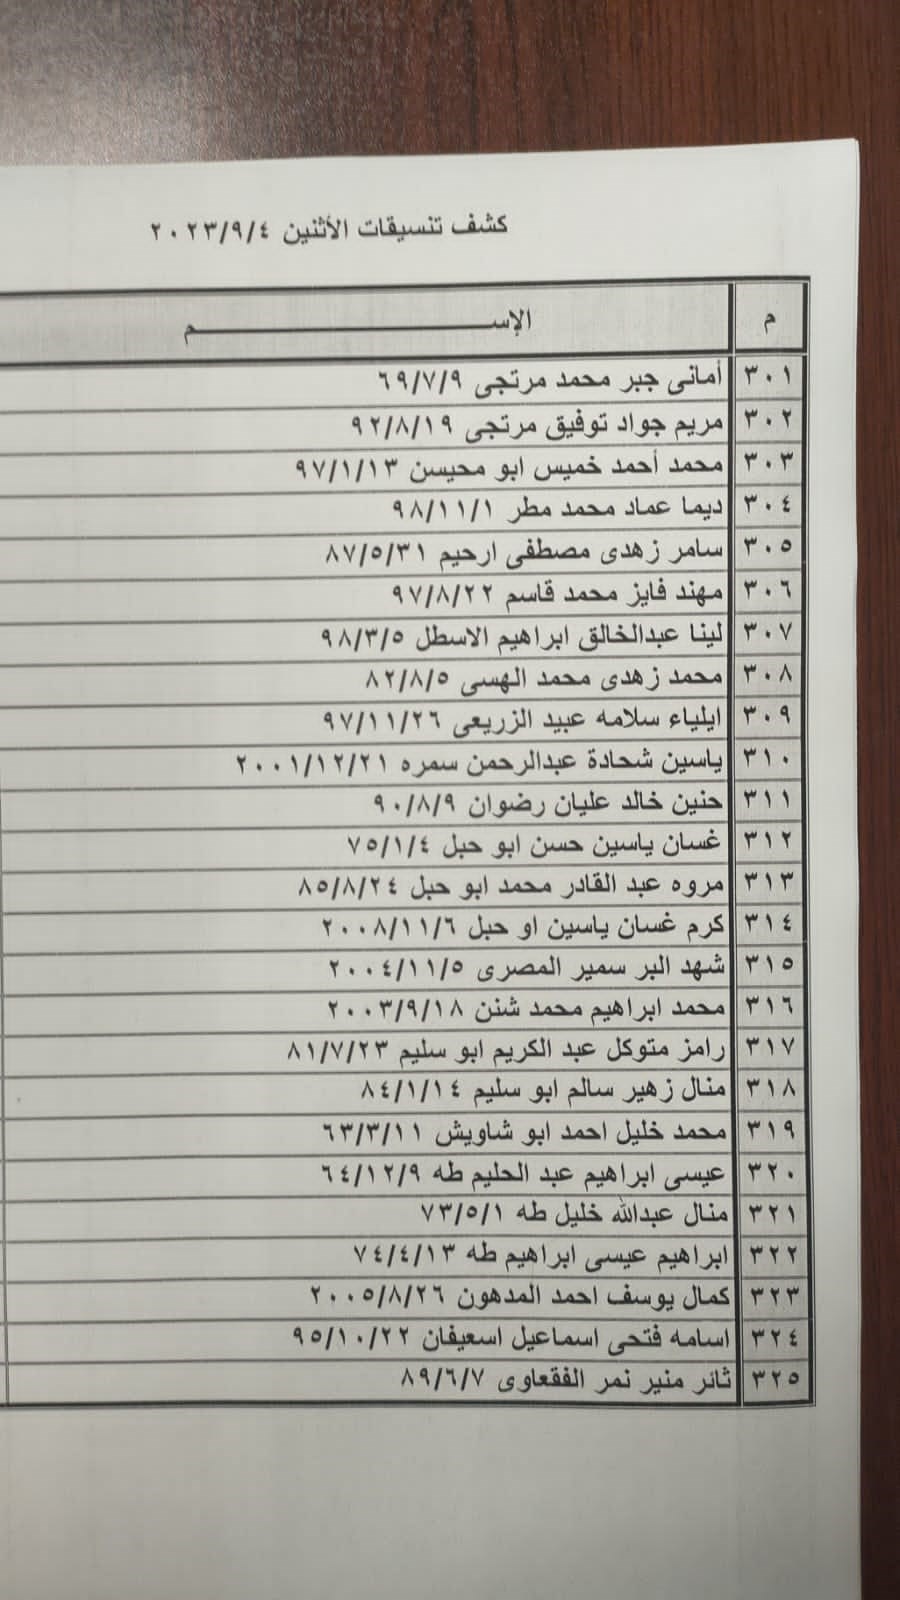 كشف تنسيقات الأثنين ٢٠٢٣/٩/٤
م الإســــــــــــم
٣٠١ أمانى جبر محمد مرتجى ٦٩/٧/٩
٣٠٢ مريم جواد توفيق مرتجى ٩٢/٨/١٩
٣٠٣ محمد أحمد خميس ابو محيسن ٩٧/١/١٣
٣٠٤ ديما عماد محمد مطر ٩٨/١١/١
٣٠٥ سامر زهدى مصطفى ارحيم ٨٧/٥/٣١
٣٠٦ مهند فايز محمد قاسم ٩٧/٨/٢٢
٣٠٧ لينا عبدالخالق ابراهيم الاسطل ٩٨/٣/٥
٣٠٨ محمد زهدى محمد الهسى ٨٢/٨/٥
٣٠٩ ايلياء سلامه عبيد الزريعى ٩٧/١١/٢٦
٣١٠ ياسين شحادة عبدالرحمن سمره ٢٠٠١/١٢/٢١
٣١١ حنين خالد عليان رضوان ٩٠/٨/٩
٣١٢ غسان ياسين حسن ابو حبل ٧٥/١/٤
٣١٣ مروه عبد القادر محمد ابو حبل ٨٥/٨/٢٤
٣١٤ كرم غسان ياسين او حبل ٢٠٠٨/١١/٦
٣١٥ شهد البر سمير المصرى ٢٠٠٤/١١/٥
٣١٦ محمد ابراهيم محمد شنن ٢٠٠٣/٩/١٨
٣١٧ رامز متوكل عبد الكريم ابو سليم ٨١/٧/٢٣
٣١٨ منال زهير سالم ابو سليم ٨٤/١/١٤
٣١٩ محمد خليل احمد ابو شاويش ٦٣/٣/١١
٣٢٠ عيسى ابراهيم عبد الحليم طه ٦٤/١٢/٩
٣٢١ منال عبدالله خليل طه ٧٣/٥/١
٣٢٢ ابراهيم عيسى ابراهيم طه ٧٤/٤/١٣
٣٢٣ كمال يوسف احمد المدهون ٢٠٠٥/٨/٢٦
٣٢٤ اسامه فتحى اسماعيل اسعيفان ٩٥/١٠/٢٢
٣٢٥ ثائر منير نمر الفقعاوى ٨٩/٦/٧